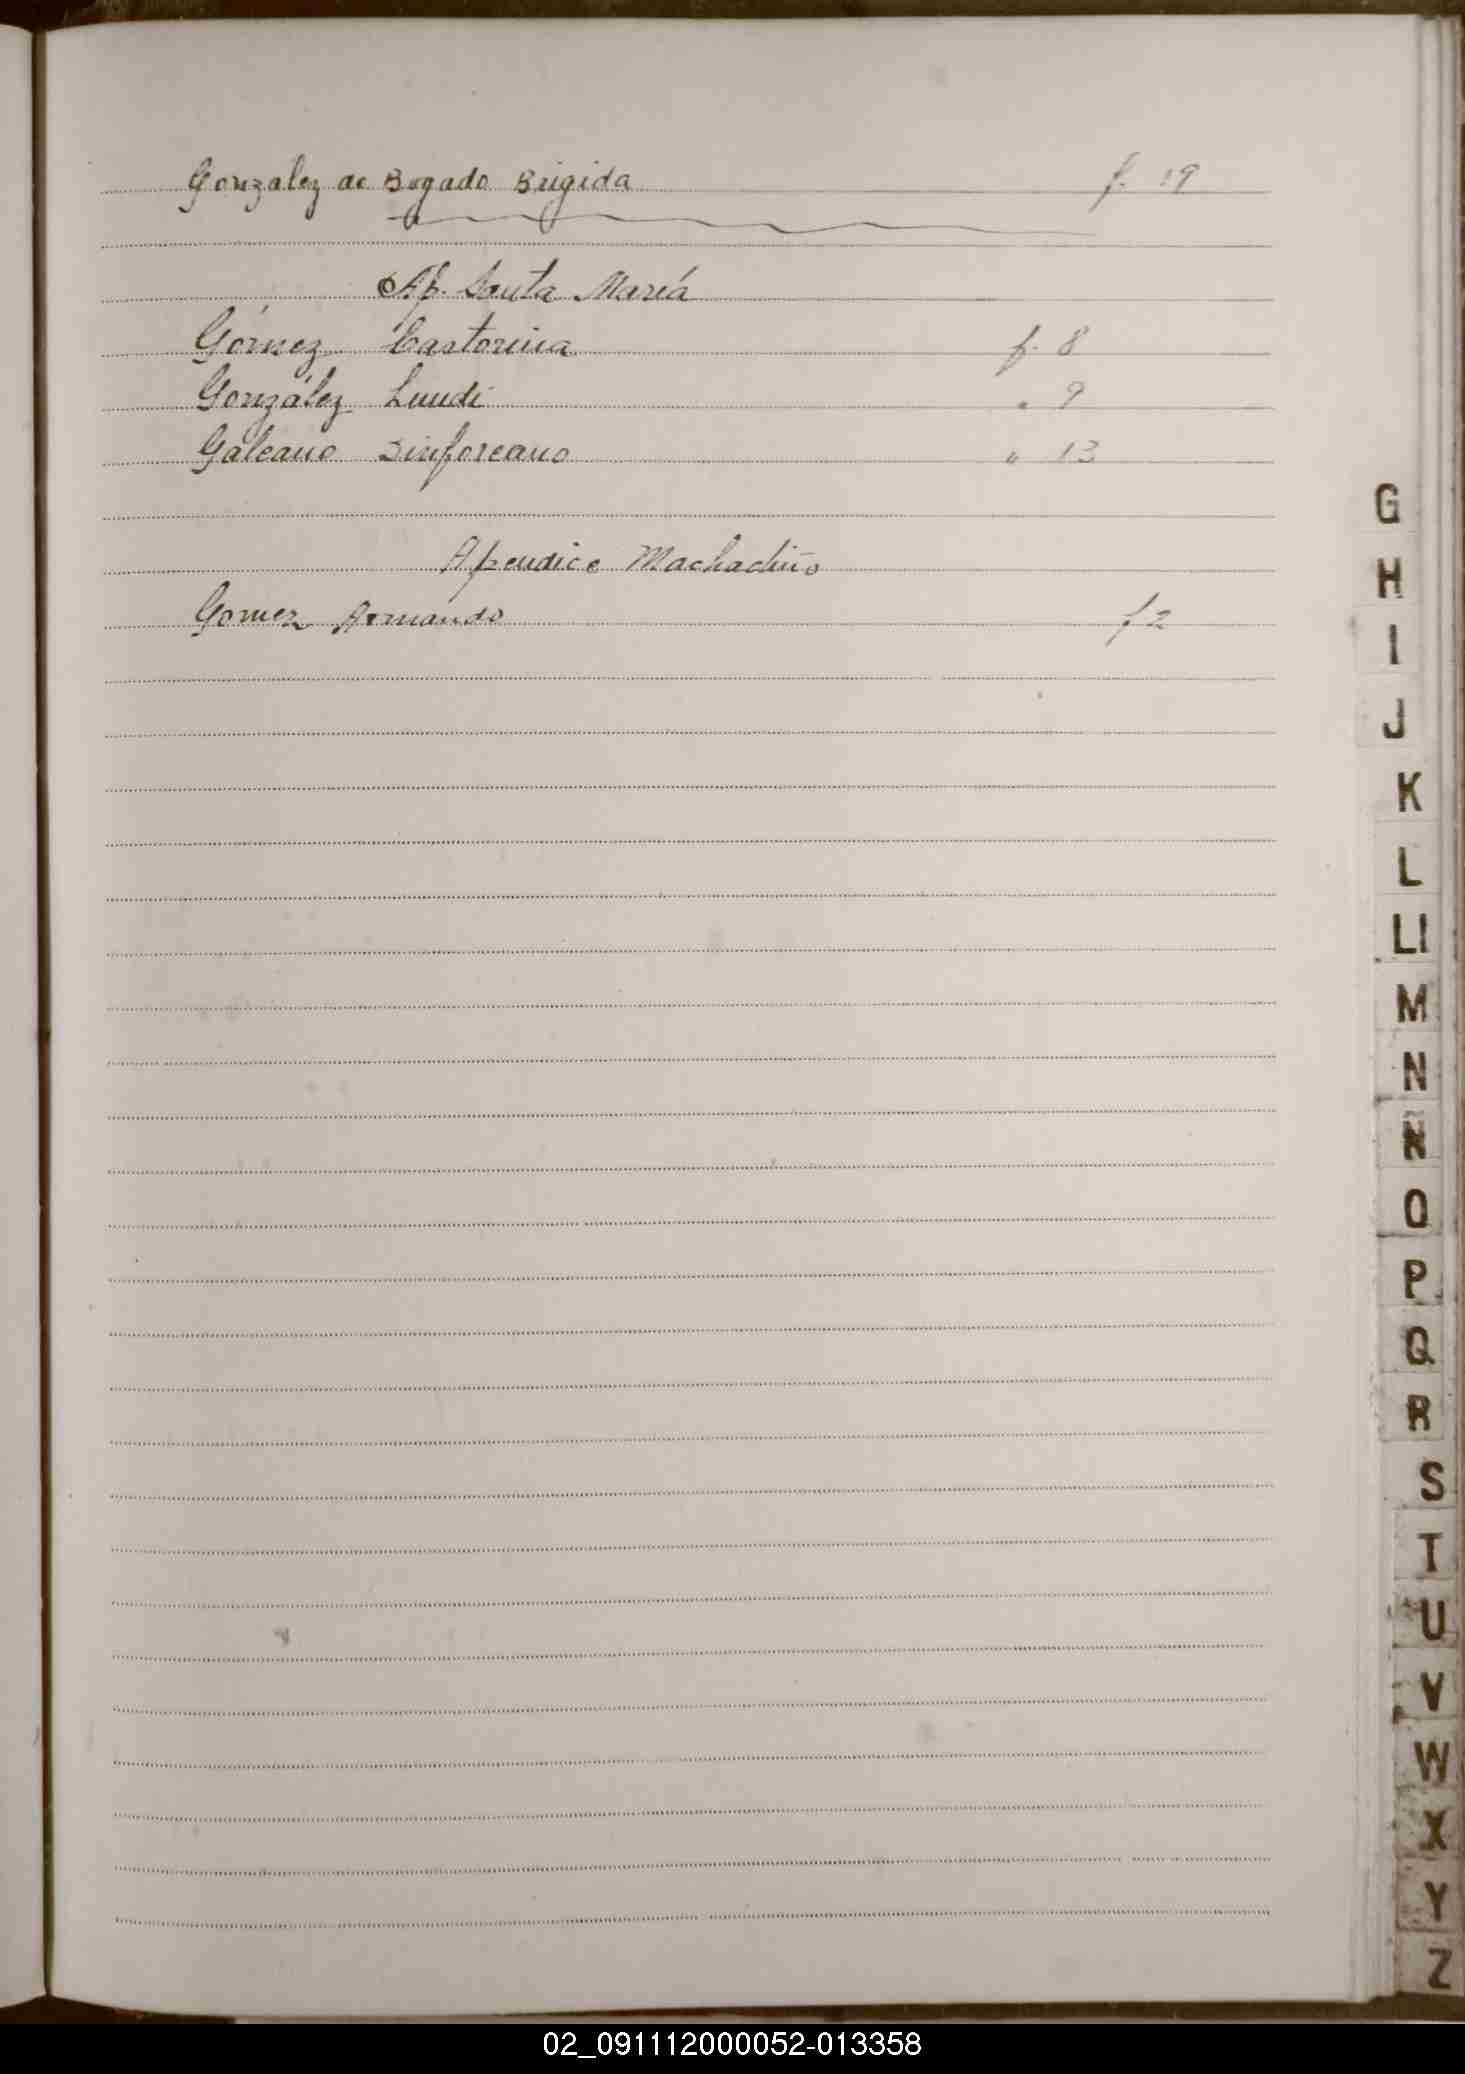 González de Bogado Brígida f. 19
Ap. Santa María
Gómez Castorina f. 8
González Lundi " 9
Galeano Sinforeano " 13
Apendice Machadiño
Gomez Armando f 2
G
H
I
J
K
L
Ll
M
N
Ñ
O
P
Q
R
S
T
U
V
W
X
Y
Z
02_091112000052-013358